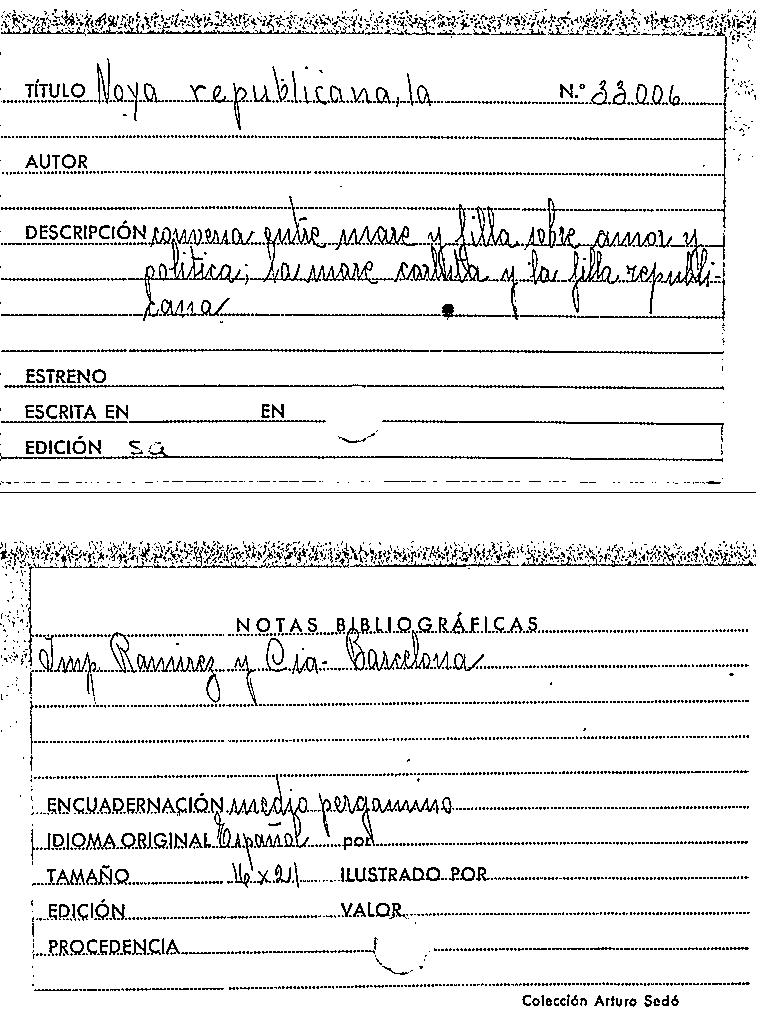 TÍTULO Noya republicana, la N.º 33006
AUTOR
DESCRIPCIÓN conversa entre mare y filla sobre amor y
politica; la mare carlista y la filla republi-
cana
ESTRENO
ESCRITA EN EN
EDICIÓN sa
NOTAS BIBLIOGRÁFICAS
Imp Ramirez y Cia - Barcelona
ENCUADERNACIÓN medio pergamino
IDIOMA ORIGINAL Español por
TAMAÑO 16 x 21 ILUSTRADO POR
EDICIÓN VALOR
PROCEDENCIA
Colección Arturo Sedó